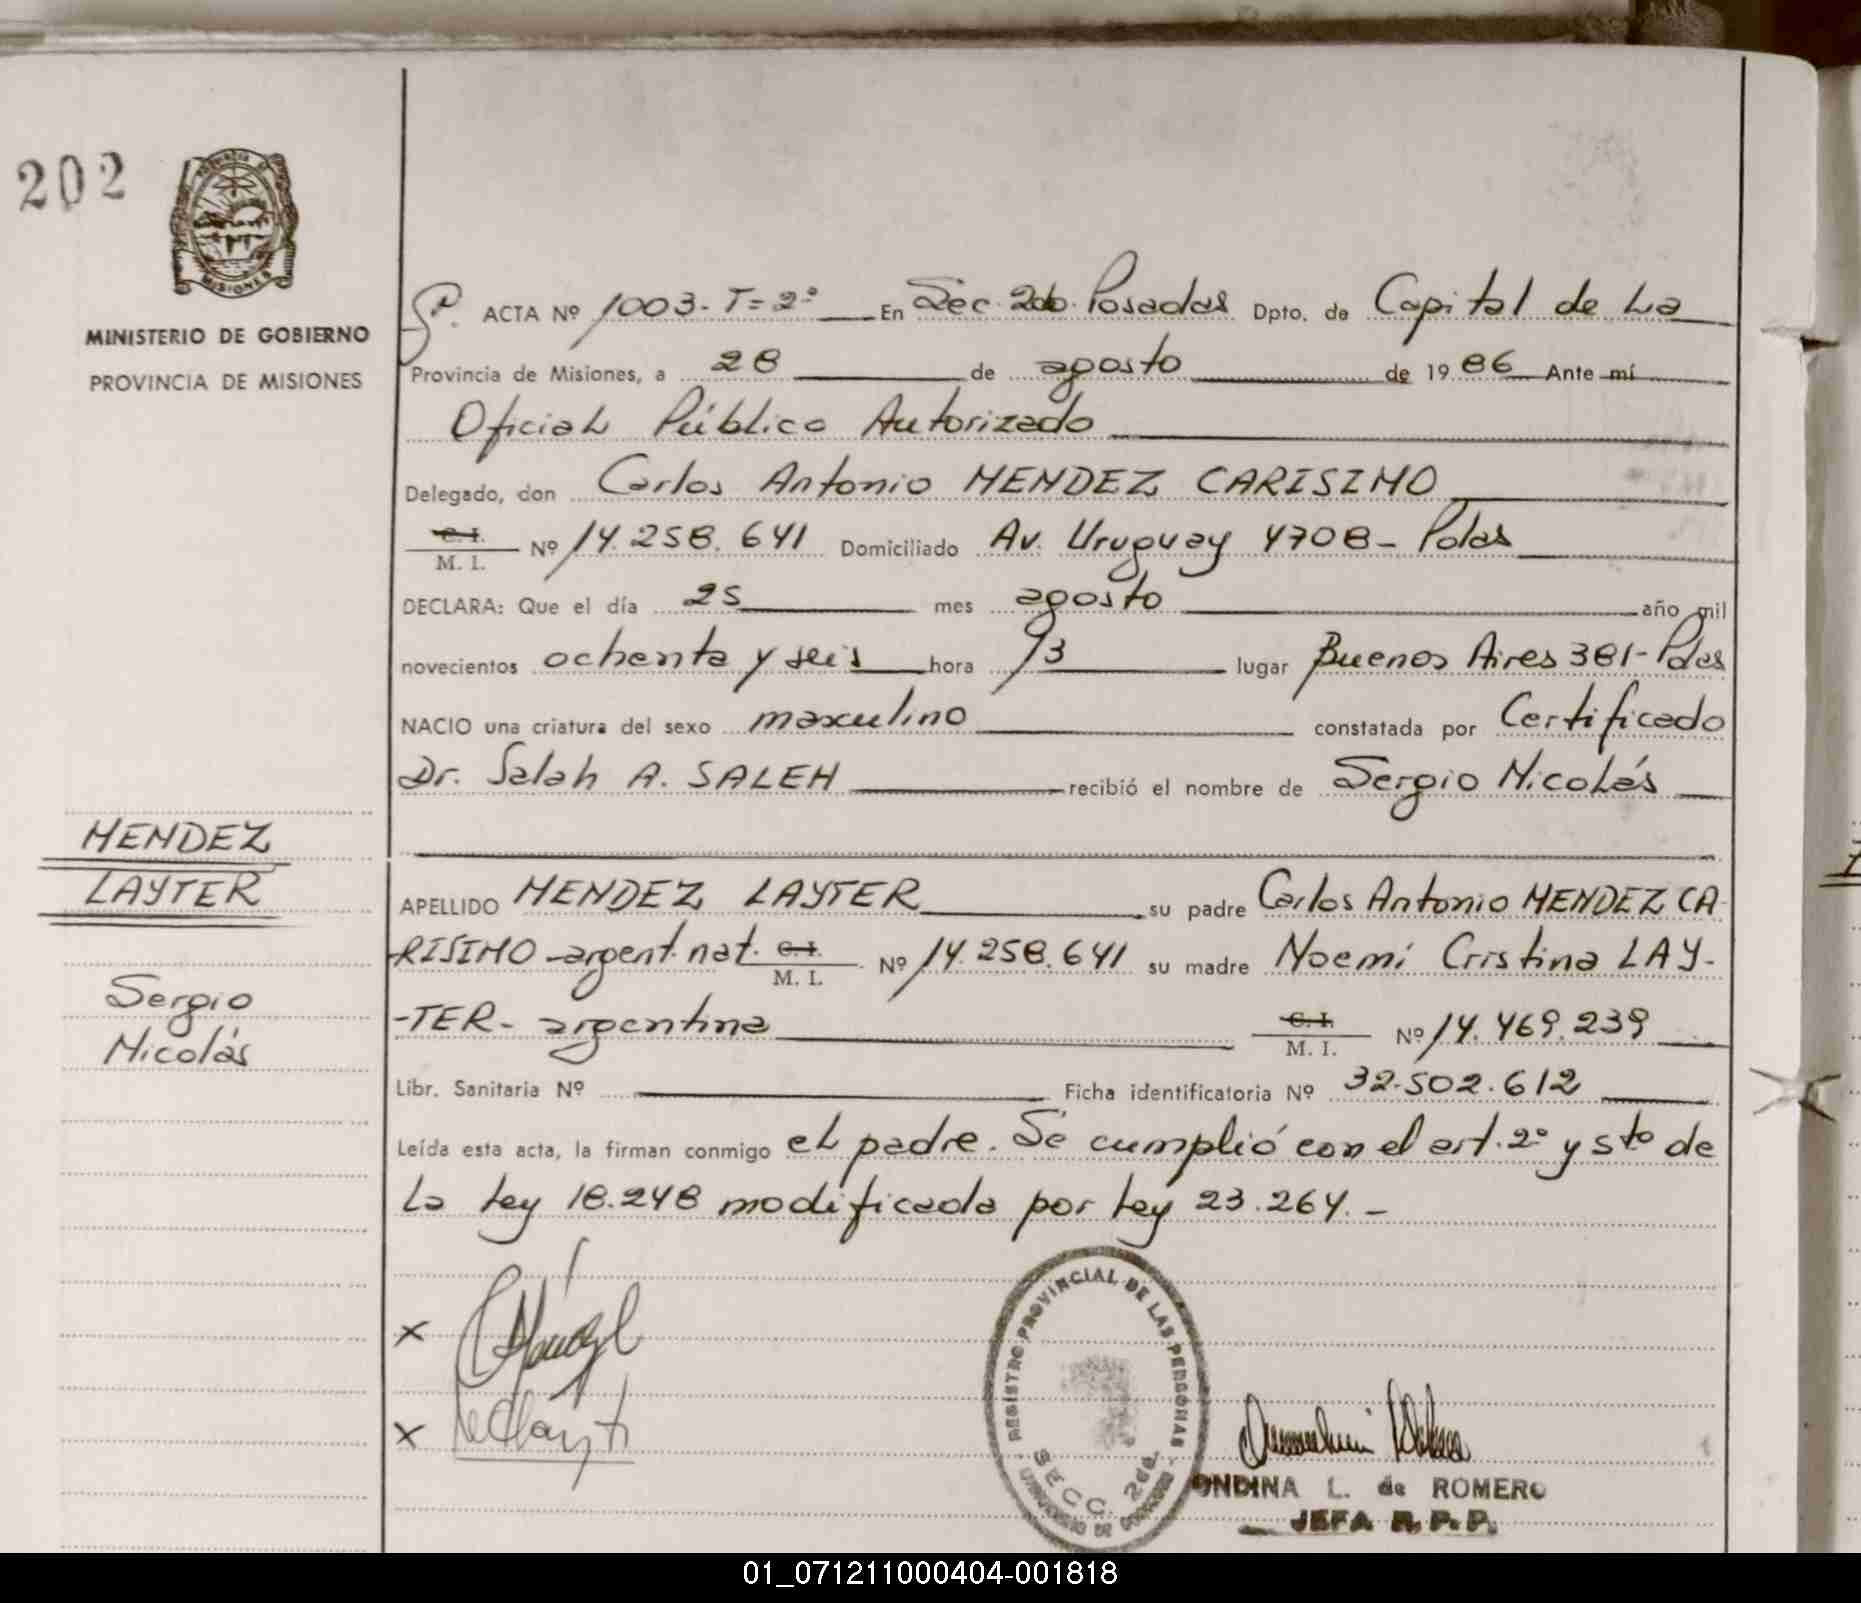 202
MISIONES
MINISTERIO DE GOBIERNO
PROVINCIA DE MISIONES
ACTA Nº 1003- T=2º En Sec. 2da. Posadas Dpto. de Capital de La
Provincia de Misiones, a 28 de agosto de 1986 Ante mí
Oficial Público Autorizado
Delegado, don Carlos Antonio MENDEZ CARISIMO
C. I.
M. I. Nº 14.258.641 Domiciliado Av. Uruguay 4708- Pdas
DECLARA: Que el día 25 mes agosto año mil
novecientos ochenta y seis hora 13 lugar Buenos Aires 381- Pdas
NACIO una criatura del sexo masculino constatada por Certificado
Dr. Salah A. SALEH recibió el nombre de Sergio Nicolás
MENDEZ
LAYTER
Sergio
Nicolás
APELLIDO MENDEZ LAYTER su padre Carlos Antonio MENDEZ CA-
RISIMO -argent. nat. C. I. M. I. Nº 14.258.641 su madre Noemí Cristina LAY-
-TER- argentina C. I. M. I. Nº 14.469.239
Libr. Sanitaria Nº Ficha identificatoria Nº 32.502.612
Leída esta acta, la firman conmigo el padre. Se cumplió con el art. 2º y 5to de
la Ley 18.248 modificada por Ley 23.264.-
x
x
REGISTRO PROVINCIAL DE LAS PERSONAS
SECC. 2da.
ONDINA L. de ROMERO
JEFA R. P. P.
01_071211000404-001818